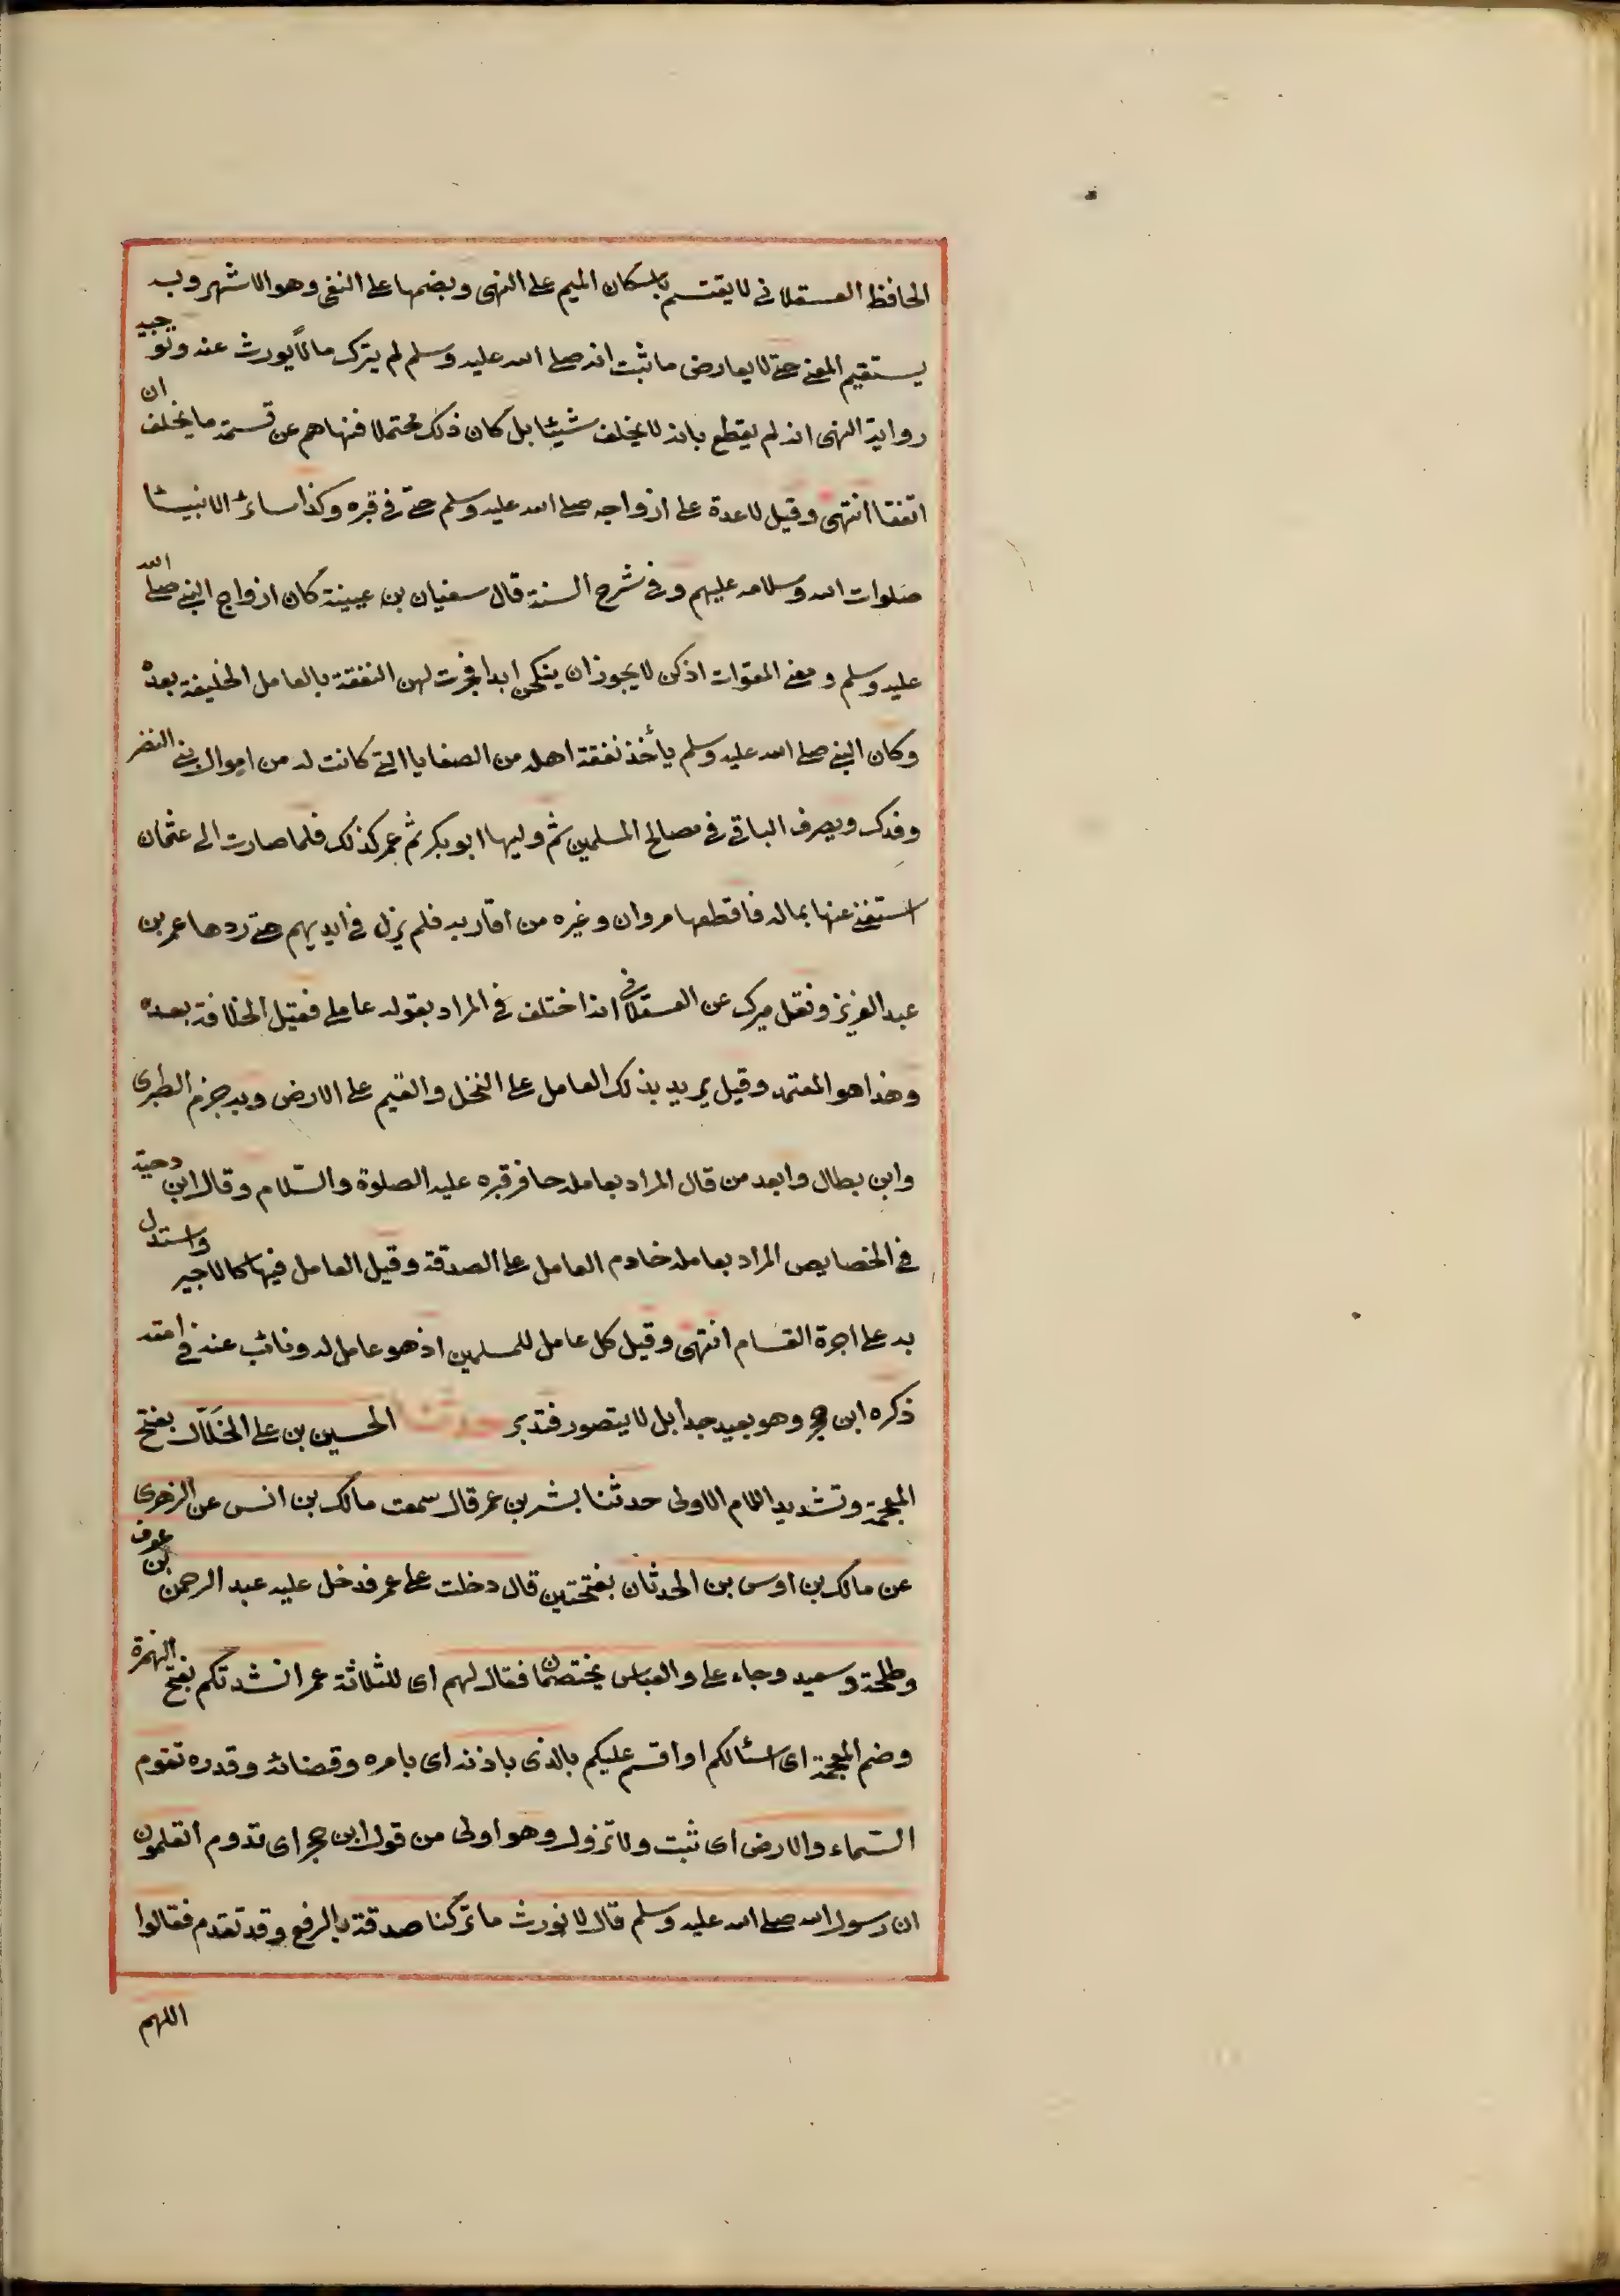 الحافظ العسقلانى لا يقتسم باسكان الميم على النهى وبضمها على النفى وهو الاشهر وبه
يستقيم المعنى حتى لا يعارض ما ثبت انه صلى الله عليه وسلم لم يترك مالاً يورث عنه وتوجيه
رواية النهى انه لم يقطع بانه لا يخلف شيئا بل كان ذلك محتملا فنهاهم عن قسمة ما يخلف ان
اتفقا انتهى وقيل لا عدة على ازواجه صلى الله عليه وسلم حتى فى قبره وكذا سائر الانبيا
صلوات الله وسلامه عليهم وفى شرح السنة قال سفيان بن عيينة كان ازواج النبى صلى الله
عليه وسلم و معنى المعتوات اذ كن لا يجوز ان ينكحن ابدا فجرت لهن النفقة بالعامل الخليفة بعده
وكان النبى صلى الله عليه وسلم يأخذ نفقة اهله من الصفايا التى كانت له من اموال بنى النضر
وفدك ويصرف الباقى فى مصالح المسلمين ثم وليها ابو بكر ثم عمر كذلك فلما صارت الى عثمان
استغنى عنها بماله فاقطعها مروان وغيره من اقاربه فلم يزل فى ايديهم حتى ردها عمر بن
عبد العزيز ونقل ميرك عن العسقلانى انه اختلف فى المراد بقوله عاملى فقيل الخلافة بعده
وهذا هو المعتمد وقيل يريد بذلك العامل على النخل والقيم على الارض وبه جزم الطبرى
وابن بطال وابعد من قال المراد بعامله حافر قبره عليه الصلوة والسّلام وقال ابن دحية
فى الخصايص المراد بعامله خادم العامل على الصدقة وقيل العامل فيها كالاجير واستدل
به على اجرة القسام انتهى وقيل كل عامل للمسلمين اذ هو عامل له ونائب عنه فى امته
ذكره ابن حجر وهو بعيد جدا بل لا يتصور فتدبر حدثنا الحسين بن على الخلّال بفتح
المعجمة وتشديد اللام الاولى حدثنا بشر بن عمر قال سمعت مالك بن انس عن الزهرى
عن مالك بن اوس بن الحدثان بفتحتين قال دخلت على عمر فدخل عليه عبد الرحمن بن عوف
وطلحة وسعيد وجاء على والعباس يختصمان فقال لهم اى للثلاثة عمر انشدتكم بفتح الهمزة
وضم المعجمة اى اسئالكم او اقسم عليكم بالذى باذنه اى بامره وقضائه وقدره تقوم
السّماء والارض اى ثبت ولا تزول وهو اولى من قول ابن حجر اى تدوم اتعلمون
ان رسول الله صلى الله عليه وسلم قال لا نورث ما تركنا صدقة بالرفع وقد تقدم فقالوا
اللهم